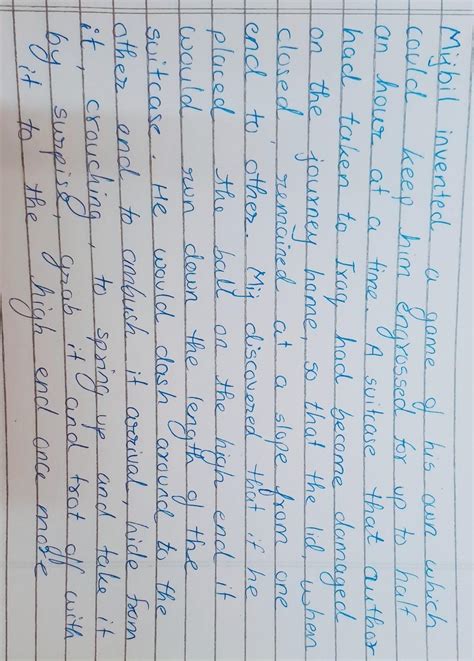 Mijbil invented a game of his own which
could keep him engrossed for up to half
an hour at a time. A suitcase that author
had taken to Iraq had become damaged
on the journey home, so that the lid, when
closed, remained at a slope from one
end to other. Mij discovered that if he
placed the ball on the high end it
would run down the length of the
suitcase. He would dash around to the
other end to ambush it arrival, hide from
it, crouching, to spring up and take it
by surpise, grab it and trot off with
it to the high end once more